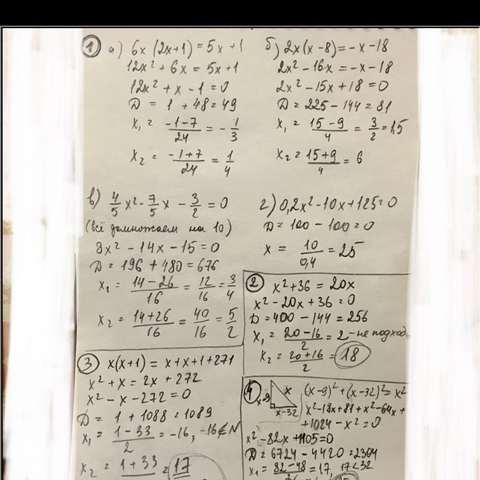 1 а) 6x (2x+1) = 5x+1
12x² + 6x = 5x+1
12x² + x - 1 = 0
D = 1 + 48 = 49
x₁ = (-1-7)/24 = -1/3
x₂ = (-1+7)/24 = 1/4
б) 2x(x-8) = -x-18
2x² - 16x = -x-18
2x² - 15x + 18 = 0
D = 225 - 144 = 81
x₁ = (15-9)/4 = 3/2 = 1,5
x₂ = (15+9)/4 = 6
в) 4/5 x² - 7/5 x - 3/2 = 0
(всё домножаем на 10)
8x² - 14x - 15 = 0
D = 196 + 480 = 676
x₁ = (14-26)/16 = 12/16 = 3/4
x₂ = (14+26)/16 = 40/16 = 5/2
г) 0,2x² - 10x + 125 = 0
D = 100 - 100 = 0
x = 10/0,4 = 25
2 x² + 36 = 20x
x² - 20x + 36 = 0
D = 400 - 144 = 256
x₁ = (20-16)/2 = 2 - не подход
x₂ = (20+16)/2 = 18
3 x(x+1) = x+x+1+271
x² + x = 2x + 272
x² - x - 272 = 0
D = 1 + 1088 = 1089
x₁ = (1-33)/2 = -16, -16 ∉ N
x₂ = 1+33 = 17
4 x-9 x x-32 (x-9)² + (x-32)² = x²
x² - 18x + 81 + x² - 64x +
+ 1024 - x² = 0
x² - 82x + 1105 = 0
D = 6724 - 4420 = 2304
x₁ = 82-48 = 17, 17 < 32